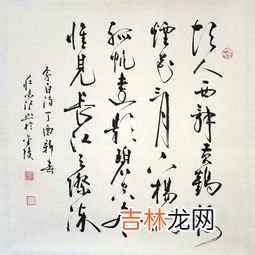 故人西辭黄鶴樓
煙花三月下揚
孤帆遠影碧空尽
惟見長江天際流
李白詩丁酉新春
於金陵
吉林龙网